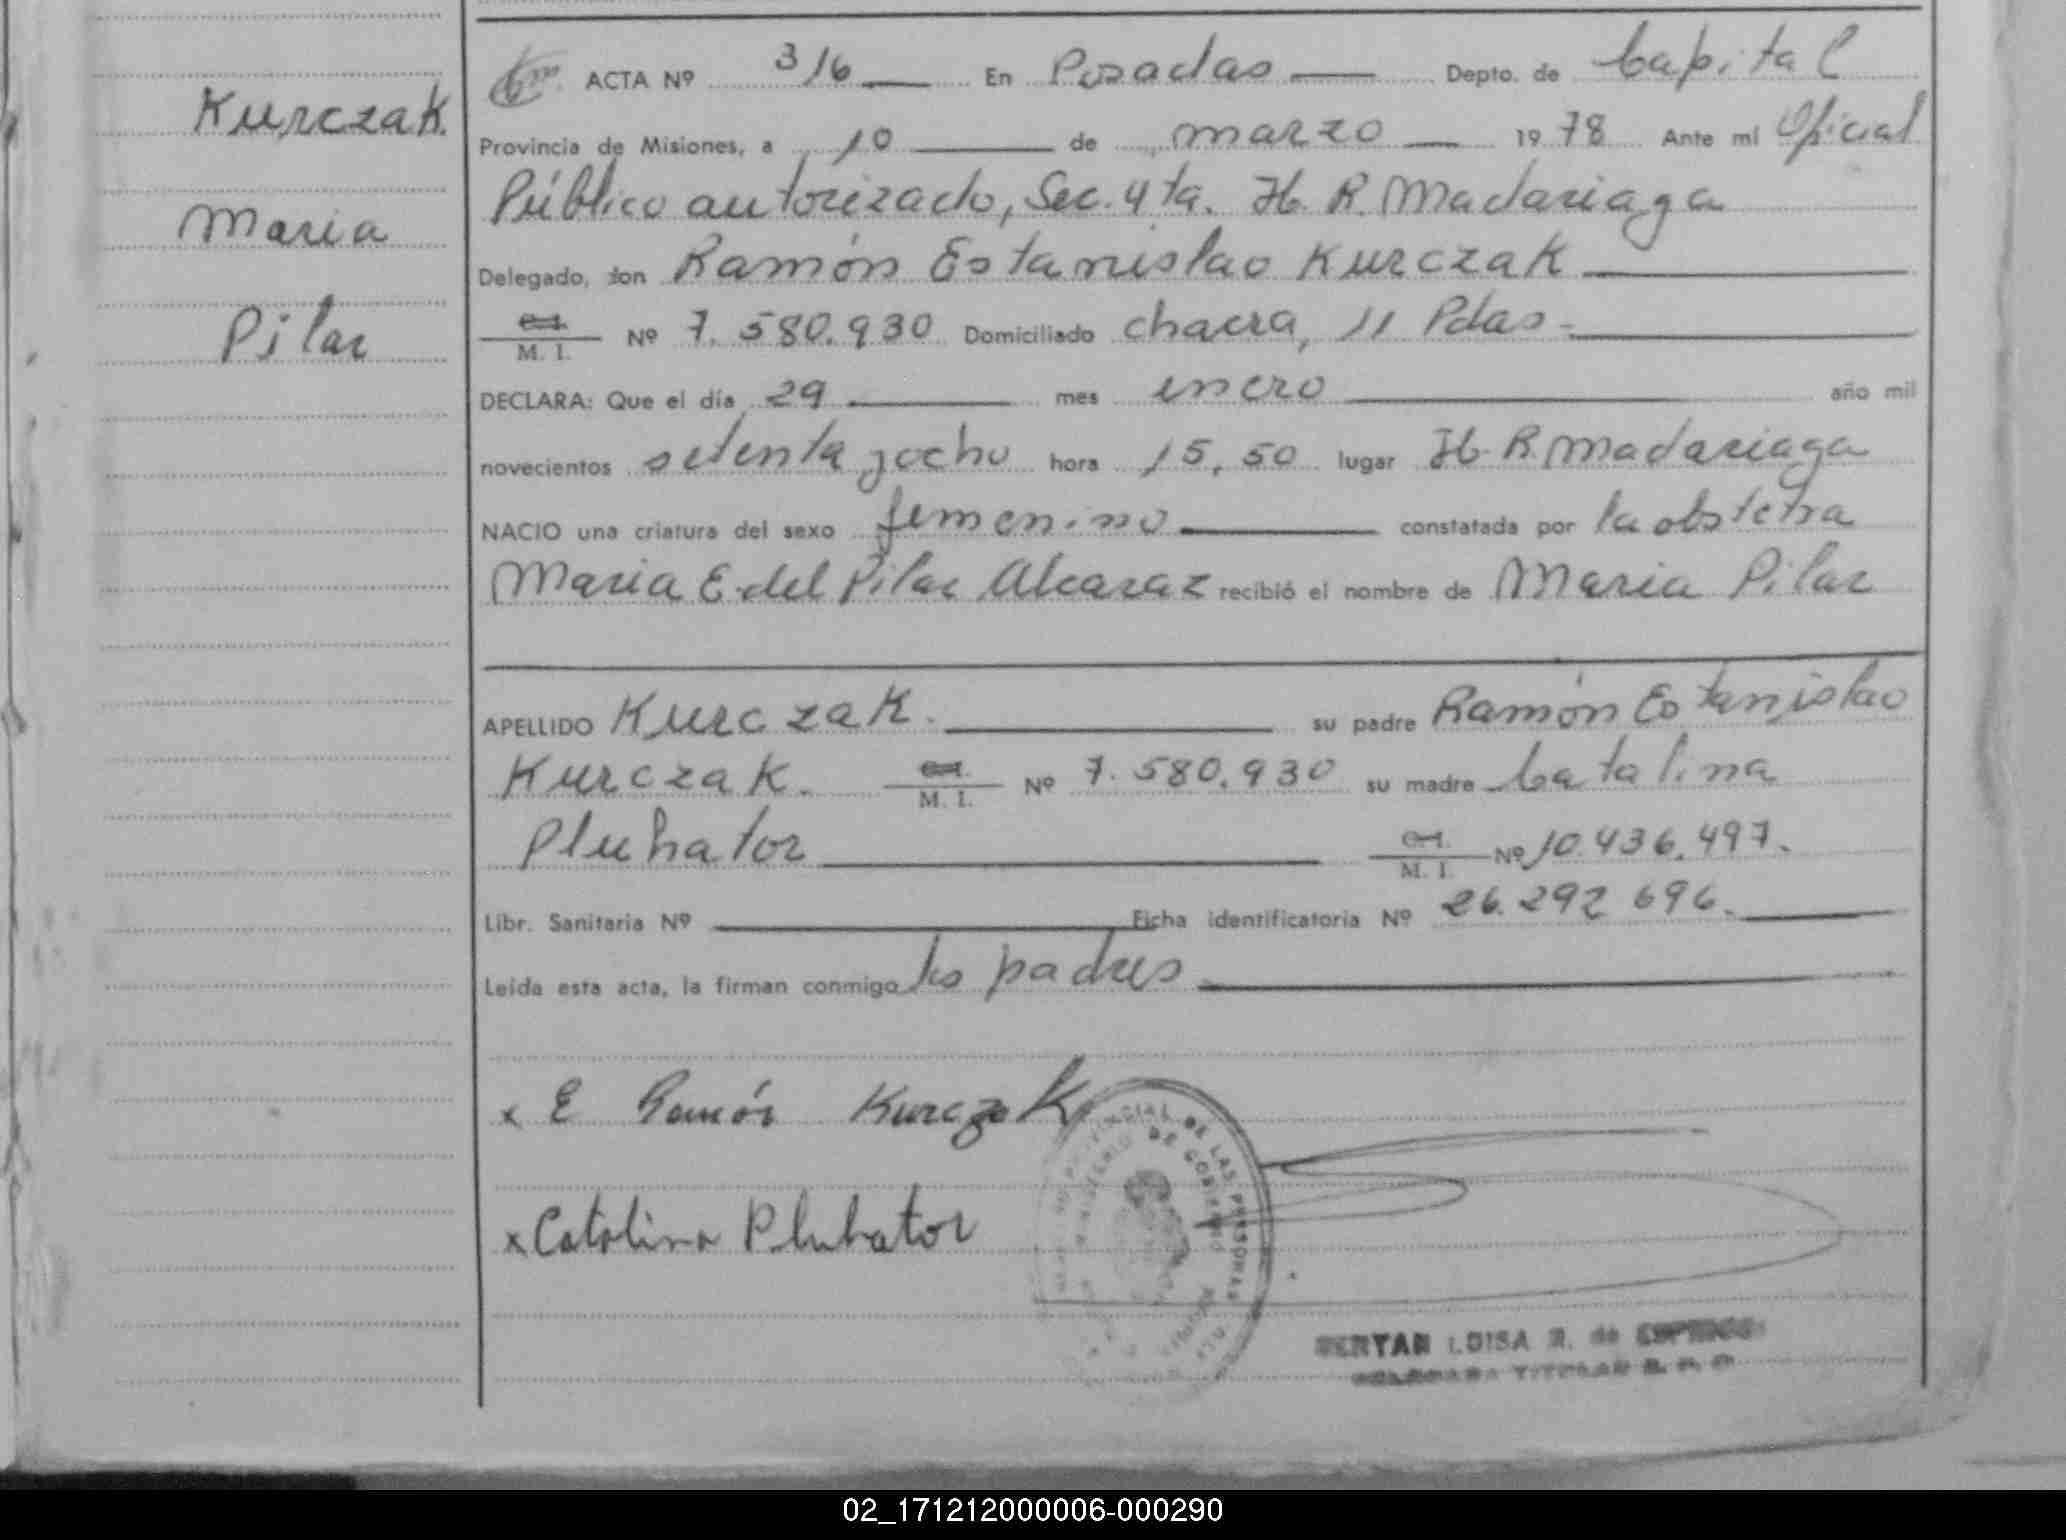 Kurczak
Maria
Pilar
ACTA Nº 316 En Posadas Depto. de Capital
Provincia de Misiones, a 10 de marzo 1978 Ante mi Oficial
Público autorizado, Sec. 4ta. H. R. Madariaga
Delegado, don Ramón Estanislao Kurczak
M. I. Nº 7.580.930 Domiciliado chacra, 11 Pdas-
DECLARA: Que el día 29 mes enero año mil
novecientos setenta y ocho hora 15,50 lugar H. R. Madariaga
NACIO una criatura del sexo femenino constatada por la obstetra
Maria E. del Pilar Alcaraz recibió el nombre de Maria Pilar
APELLIDO Kurczak. su padre Ramón Estanislao
Kurczak. M. I. Nº 7.580.930 su madre Catalina
Pluhator M. I. Nº 10.436.497.
Libr. Sanitaria Nº Ficha identificatoria Nº 26.292 696.
Leída esta acta, la firman conmigo los padres
x E Ramón Kurczak
x Catalina Pluhator
PROVINCIAL DE LAS PERSONAS
MINISTERIO DE GOBIERNO
LUISA R. de
TITULAR
02_171212000006-000290